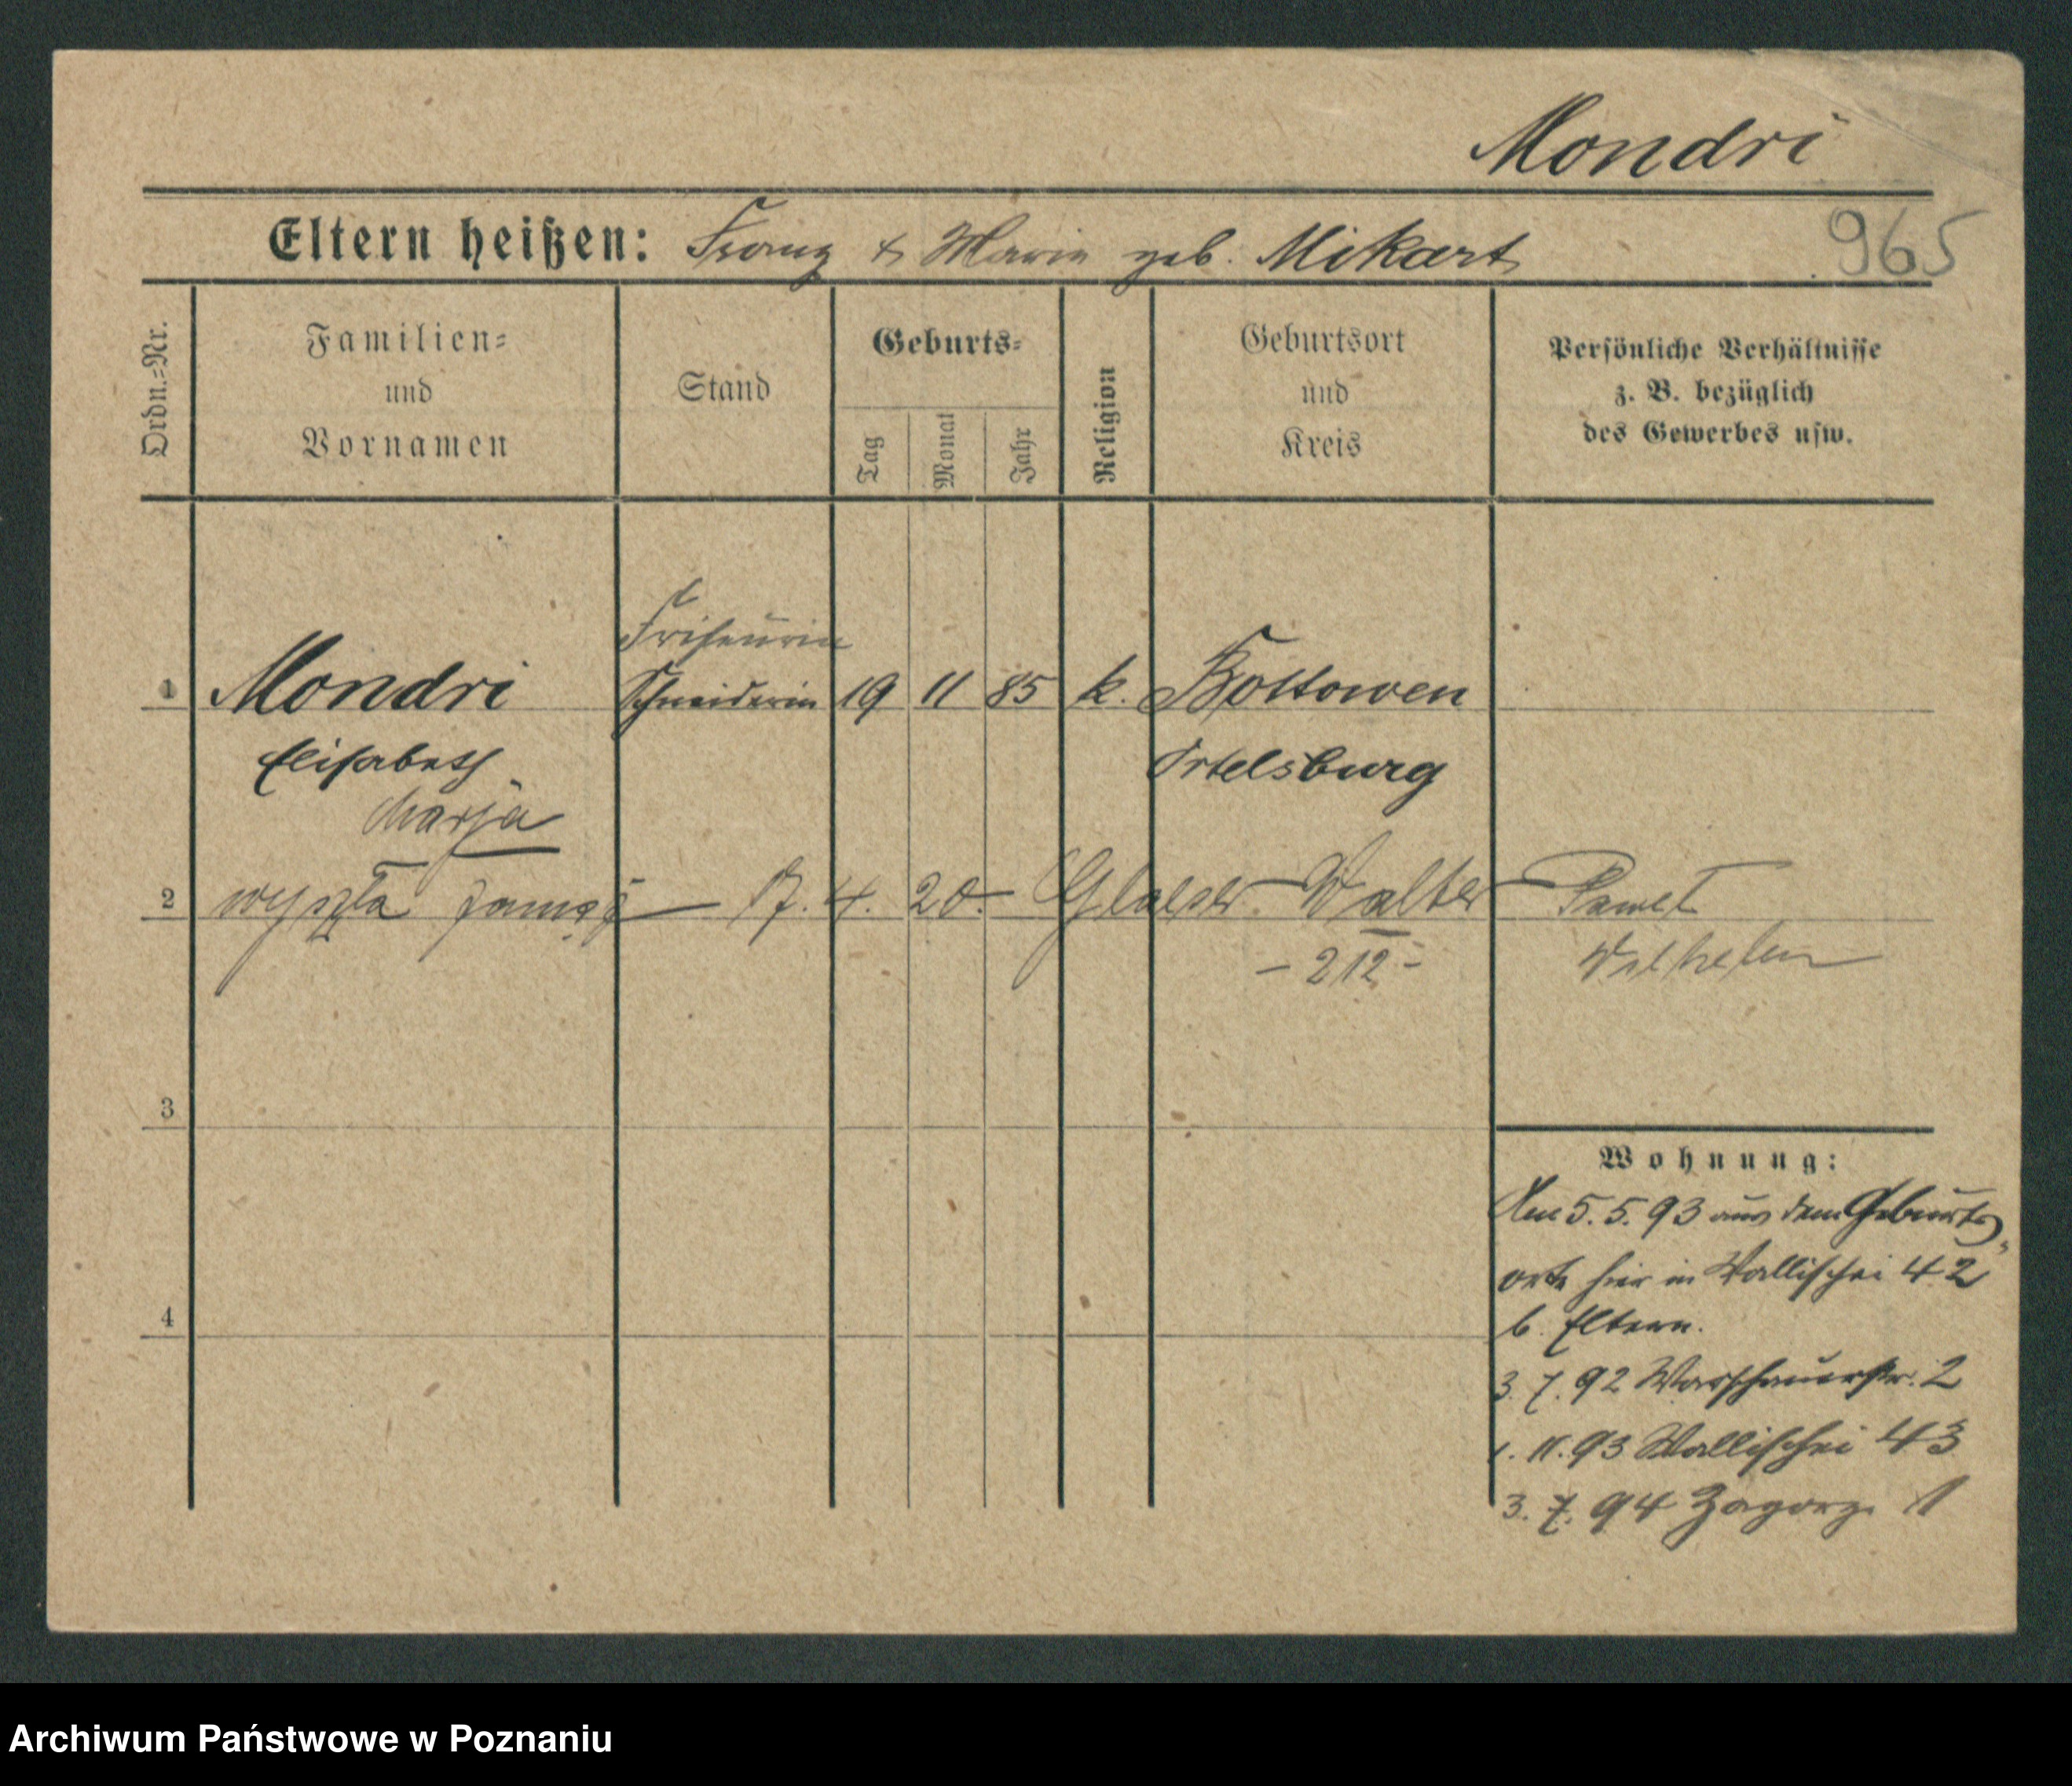 Mondri
Eltern heißen: Franz & Marie geb. Mikart
965
Ordn.=Nr.
Familien=
und
Vornamen
Stand
Geburts=
Tag
Monat
Jahr
Religion
Geburtsort
und
Kreis
Persönliche Verhältnisse
z. B. bezüglich
des Gewerbes usw.
Friseurin
1 Mondri Schneiderin 19 11 85 k. Kottowen
Elisabeth Ortelsburg
Marja
2 wyszła zamąż 17. 4. 20. Glaeser Walter Paweł
- 212 - Wilhelm
3
4
Wohnung:
Am 5. 5. 93 aus dem Geburts
orte hier in Wallischei 42
b. Eltern.
3. 7. 92 Warschauerstr. 2
1. 11. 93 Wallischei 43
3. 7. 94 Zagorze 1
Archiwum Państwowe w Poznaniu